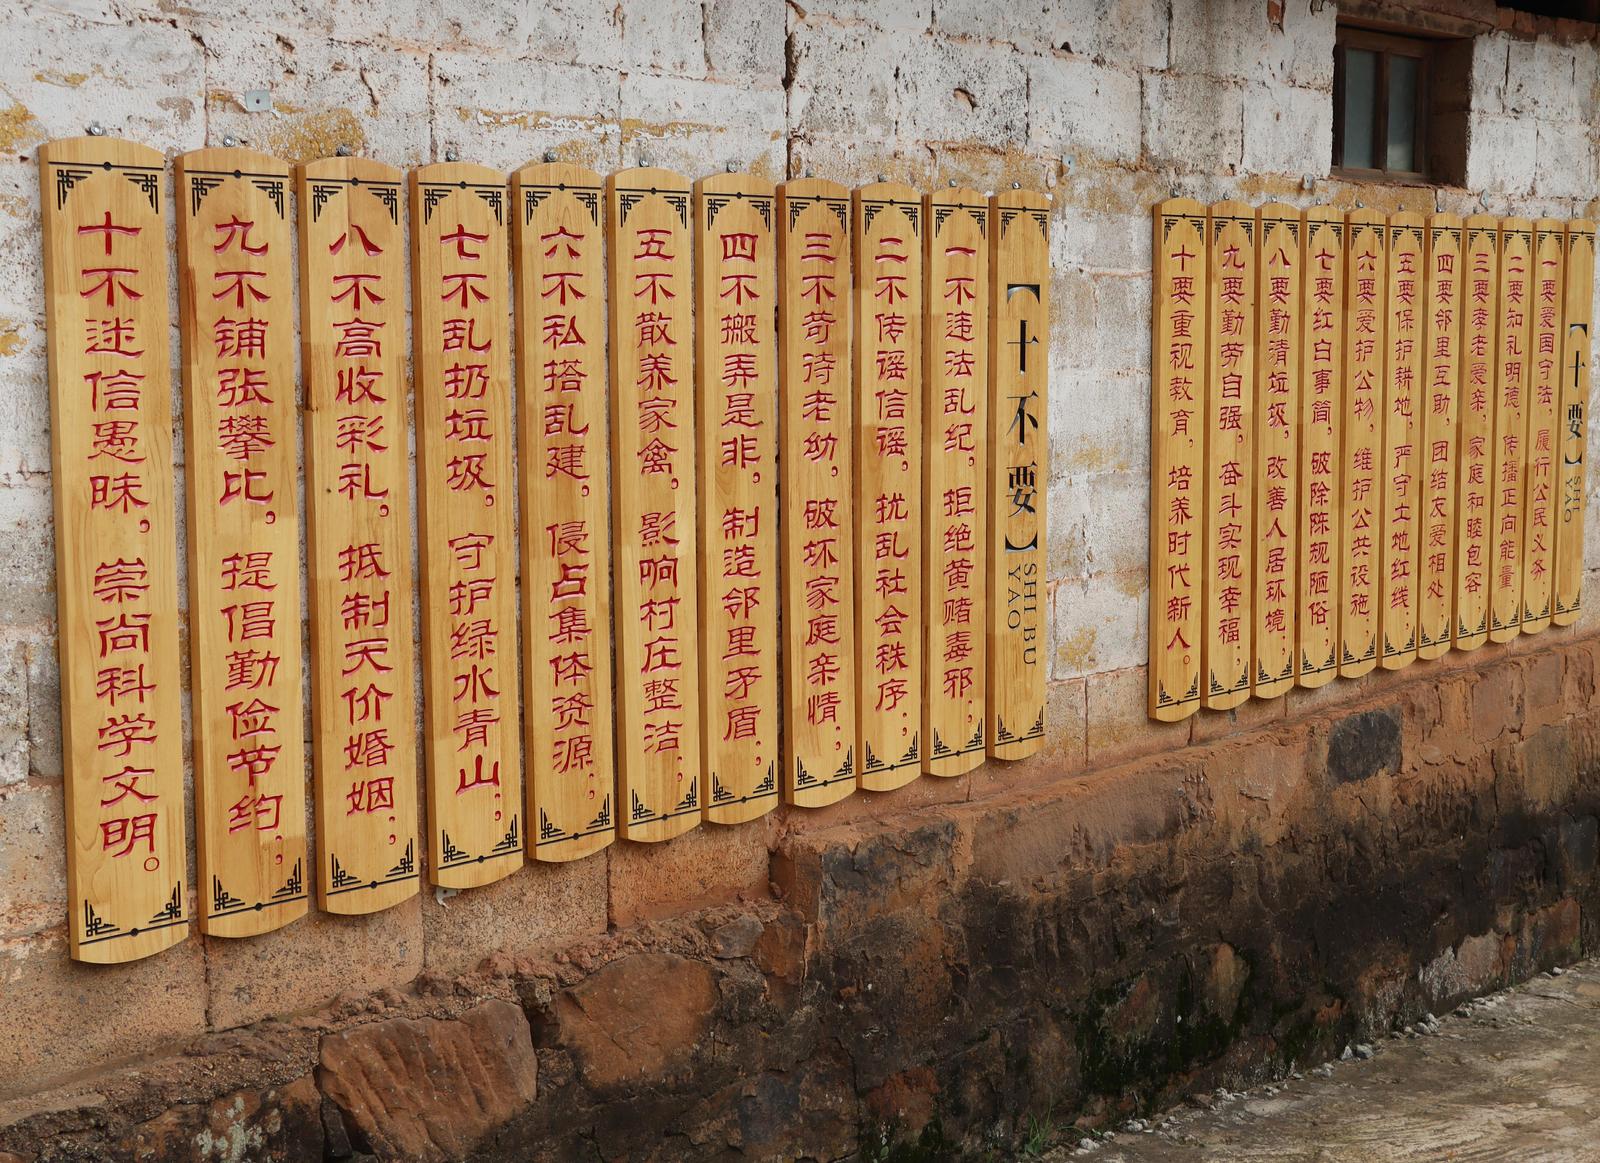 【十要】
SHI
YAO
一要爱国守法，履行公民义务；
二要知礼明德，传播正向能量；
三要孝老爱亲，家庭和睦包容；
四要邻里互助，团结友爱相处；
五要保护耕地，严守土地红线；
六要爱护公物，维护公共设施；
七要红白事简，破除陈规陋俗；
八要勤清垃圾，改善人居环境；
九要勤劳自强，奋斗实现幸福；
十要重视教育，培养时代新人。
【十不要】
SHI BU
YAO
一不违法乱纪，拒绝黄赌毒邪；
二不传谣信谣，扰乱社会秩序；
三不苛待老幼，破坏家庭亲情；
四不搬弄是非，制造邻里矛盾；
五不散养家禽，影响村庄整洁；
六不私搭乱建，侵占集体资源；
七不乱扔垃圾，守护绿水青山；
八不高收彩礼，抵制天价婚姻；
九不铺张攀比，提倡勤俭节约；
十不迷信愚昧，崇尚科学文明。